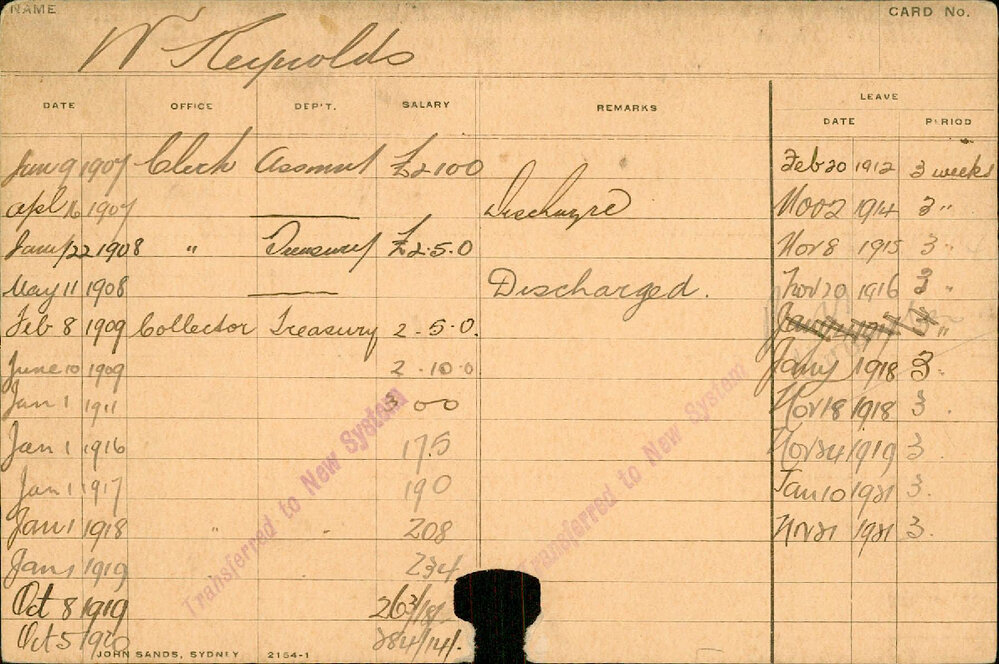 NAME CARD No.
W Reynolds
DATE OFFICE DEP'T. SALARY REMARKS LEAVE
DATE PERIOD
Jany 9 1907 Clerk Assmnt £2 10 0 Feb 20 1912 3 weeks
Apl 16 1907 Discharge Nov 2 1914 3 "
Jany 22 1908 " Treasury £2.5.0 Nov 8 1915 3 "
May 11 1908 Discharged. Nov 20 1916 3 "
Feb 8 1909 Collector Treasury 2.5.0. 3 "
June 10 1909 2.10.0 Jany 1918 3 "
Jan 1 1911 3 00 Nov 18 1918 3 .
Jan 1 1916 175 Nov 24 1919 3 .
Jan 1 1917 190 Jan 10 1921 3 .
Jan 1 1918 " " 208 Nov 21 1921 3 .
Jan 1 1919 234
Oct 8 1919 263/18/-
Oct 5 1920 284/14/-
Transferred to New System
Transferred to New System
JOHN SANDS, SYDNEY 2154-1